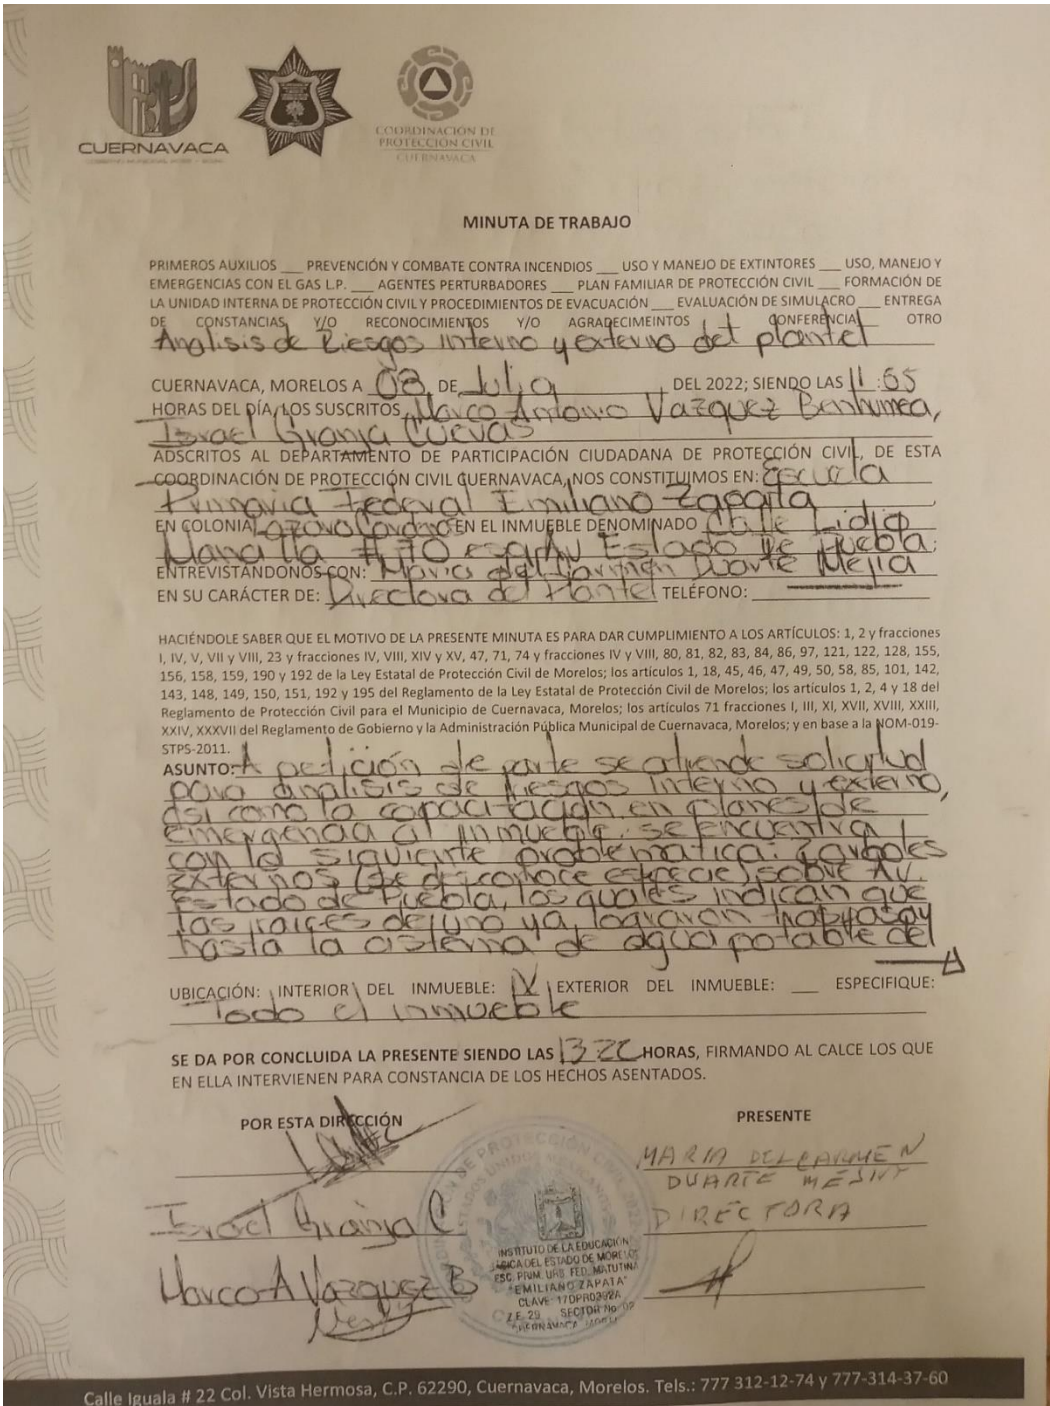 CUERNAVACA
COORDINACIÓN DE
PROTECCIÓN CIVIL
CUERNAVACA
MINUTA DE TRABAJO
PRIMEROS AUXILIOS ___ PREVENCIÓN Y COMBATE CONTRA INCENDIOS ___ USO Y MANEJO DE EXTINTORES ___ USO, MANEJO Y
EMERGENCIAS CON EL GAS L.P. ___ AGENTES PERTURBADORES ___ PLAN FAMILIAR DE PROTECCIÓN CIVIL ___ FORMACIÓN DE
LA UNIDAD INTERNA DE PROTECCIÓN CIVIL Y PROCEDIMIENTOS DE EVACUACIÓN ___ EVALUACIÓN DE SIMULACRO ___ ENTREGA
DE CONSTANCIAS Y/O RECONOCIMIENTOS Y/O AGRADECIMEINTOS CONFERENCIA OTRO
Analisis de Riesgos interno y externo del plantel
CUERNAVACA, MORELOS A 08 DE Julio DEL 2022; SIENDO LAS 11:
HORAS DEL DÍA, LOS SUSCRITOS Marco Antonio Vazquez Benhumea,
Israel Granja Cuevas
ADSCRITOS AL DEPARTAMENTO DE PARTICIPACIÓN CIUDADANA DE PROTECCIÓN CIVIL, DE ESTA
COORDINACIÓN DE PROTECCIÓN CIVIL CUERNAVACA, NOS CONSTITUIMOS EN: Escuela
Primaria Federal Emiliano Zapata
EN COLONIA Lazaro Cardenas EN EL INMUEBLE DENOMINADO Calle Lidia
Mancilla #70 esq Av Estado de Puebla.
ENTREVISTÁNDONOS CON: Maria del Carmen Duarte Mejia
EN SU CARÁCTER DE: Directora del Plantel TELÉFONO:
HACIÉNDOLE SABER QUE EL MOTIVO DE LA PRESENTE MINUTA ES PARA DAR CUMPLIMIENTO A LOS ARTÍCULOS: 1, 2 y fracciones
I, IV, V, VII y VIII, 23 y fracciones IV, VIII, XIV y XV, 47, 71, 74 y fracciones IV y VIII, 80, 81, 82, 83, 84, 86, 97, 121, 122, 128, 155,
156, 158, 159, 190 y 192 de la Ley Estatal de Protección Civil de Morelos; los artículos 1, 18, 45, 46, 47, 49, 50, 58, 85, 101, 142,
143, 148, 149, 150, 151, 192 y 195 del Reglamento de la Ley Estatal de Protección Civil de Morelos; los artículos 1, 2, 4 y 18 del
Reglamento de Protección Civil para el Municipio de Cuernavaca, Morelos; los artículos 71 fracciones I, III, XI, XVII, XVIII, XXIII,
XXIV, XXXVII del Reglamento de Gobierno y la Administración Pública Municipal de Cuernavaca, Morelos; y en base a la NOM-019-
STPS-2011.
ASUNTO: A petición de parte se atiende solicitud
para analisis de Riesgos interno y externo,
asi como la capacitacion en planes de
emergencia al inmueble. se encuentra
con la siguiente problematica: 2 arboles
externos (se desconoce especie) sobre Av.
Estado de Puebla, los quales indican que
las raices de uno ya, lograron traspasar
hasta la cisterna de agua potable del
UBICACIÓN: INTERIOR DEL INMUEBLE: EXTERIOR DEL INMUEBLE: ___ ESPECIFIQUE:
Todo el inmueble
SE DA POR CONCLUIDA LA PRESENTE SIENDO LAS 13 HORAS, FIRMANDO AL CALCE LOS QUE
EN ELLA INTERVIENEN PARA CONSTANCIA DE LOS HECHOS ASENTADOS.
POR ESTA DIRECCIÓN PRESENTE
MARIA DEL CARMEN
DUARTE
DIRECTORA
Israel Granja C.
Marco A Vazquez B
INSTITUTO DE LA EDUCACIÓN
BÁSICA DEL ESTADO DE MORELOS
ESC. PRIM. URB. FED. MATUTINA
"EMILIANO ZAPATA"
CLAVE 17DPR0392A
Z.E. 29 SECTOR No. 02
CUERNAVACA MOR.
Calle Iguala # 22 Col. Vista Hermosa, C.P. 62290, Cuernavaca, Morelos. Tels.: 777 312-12-74 y 777-314-37-60